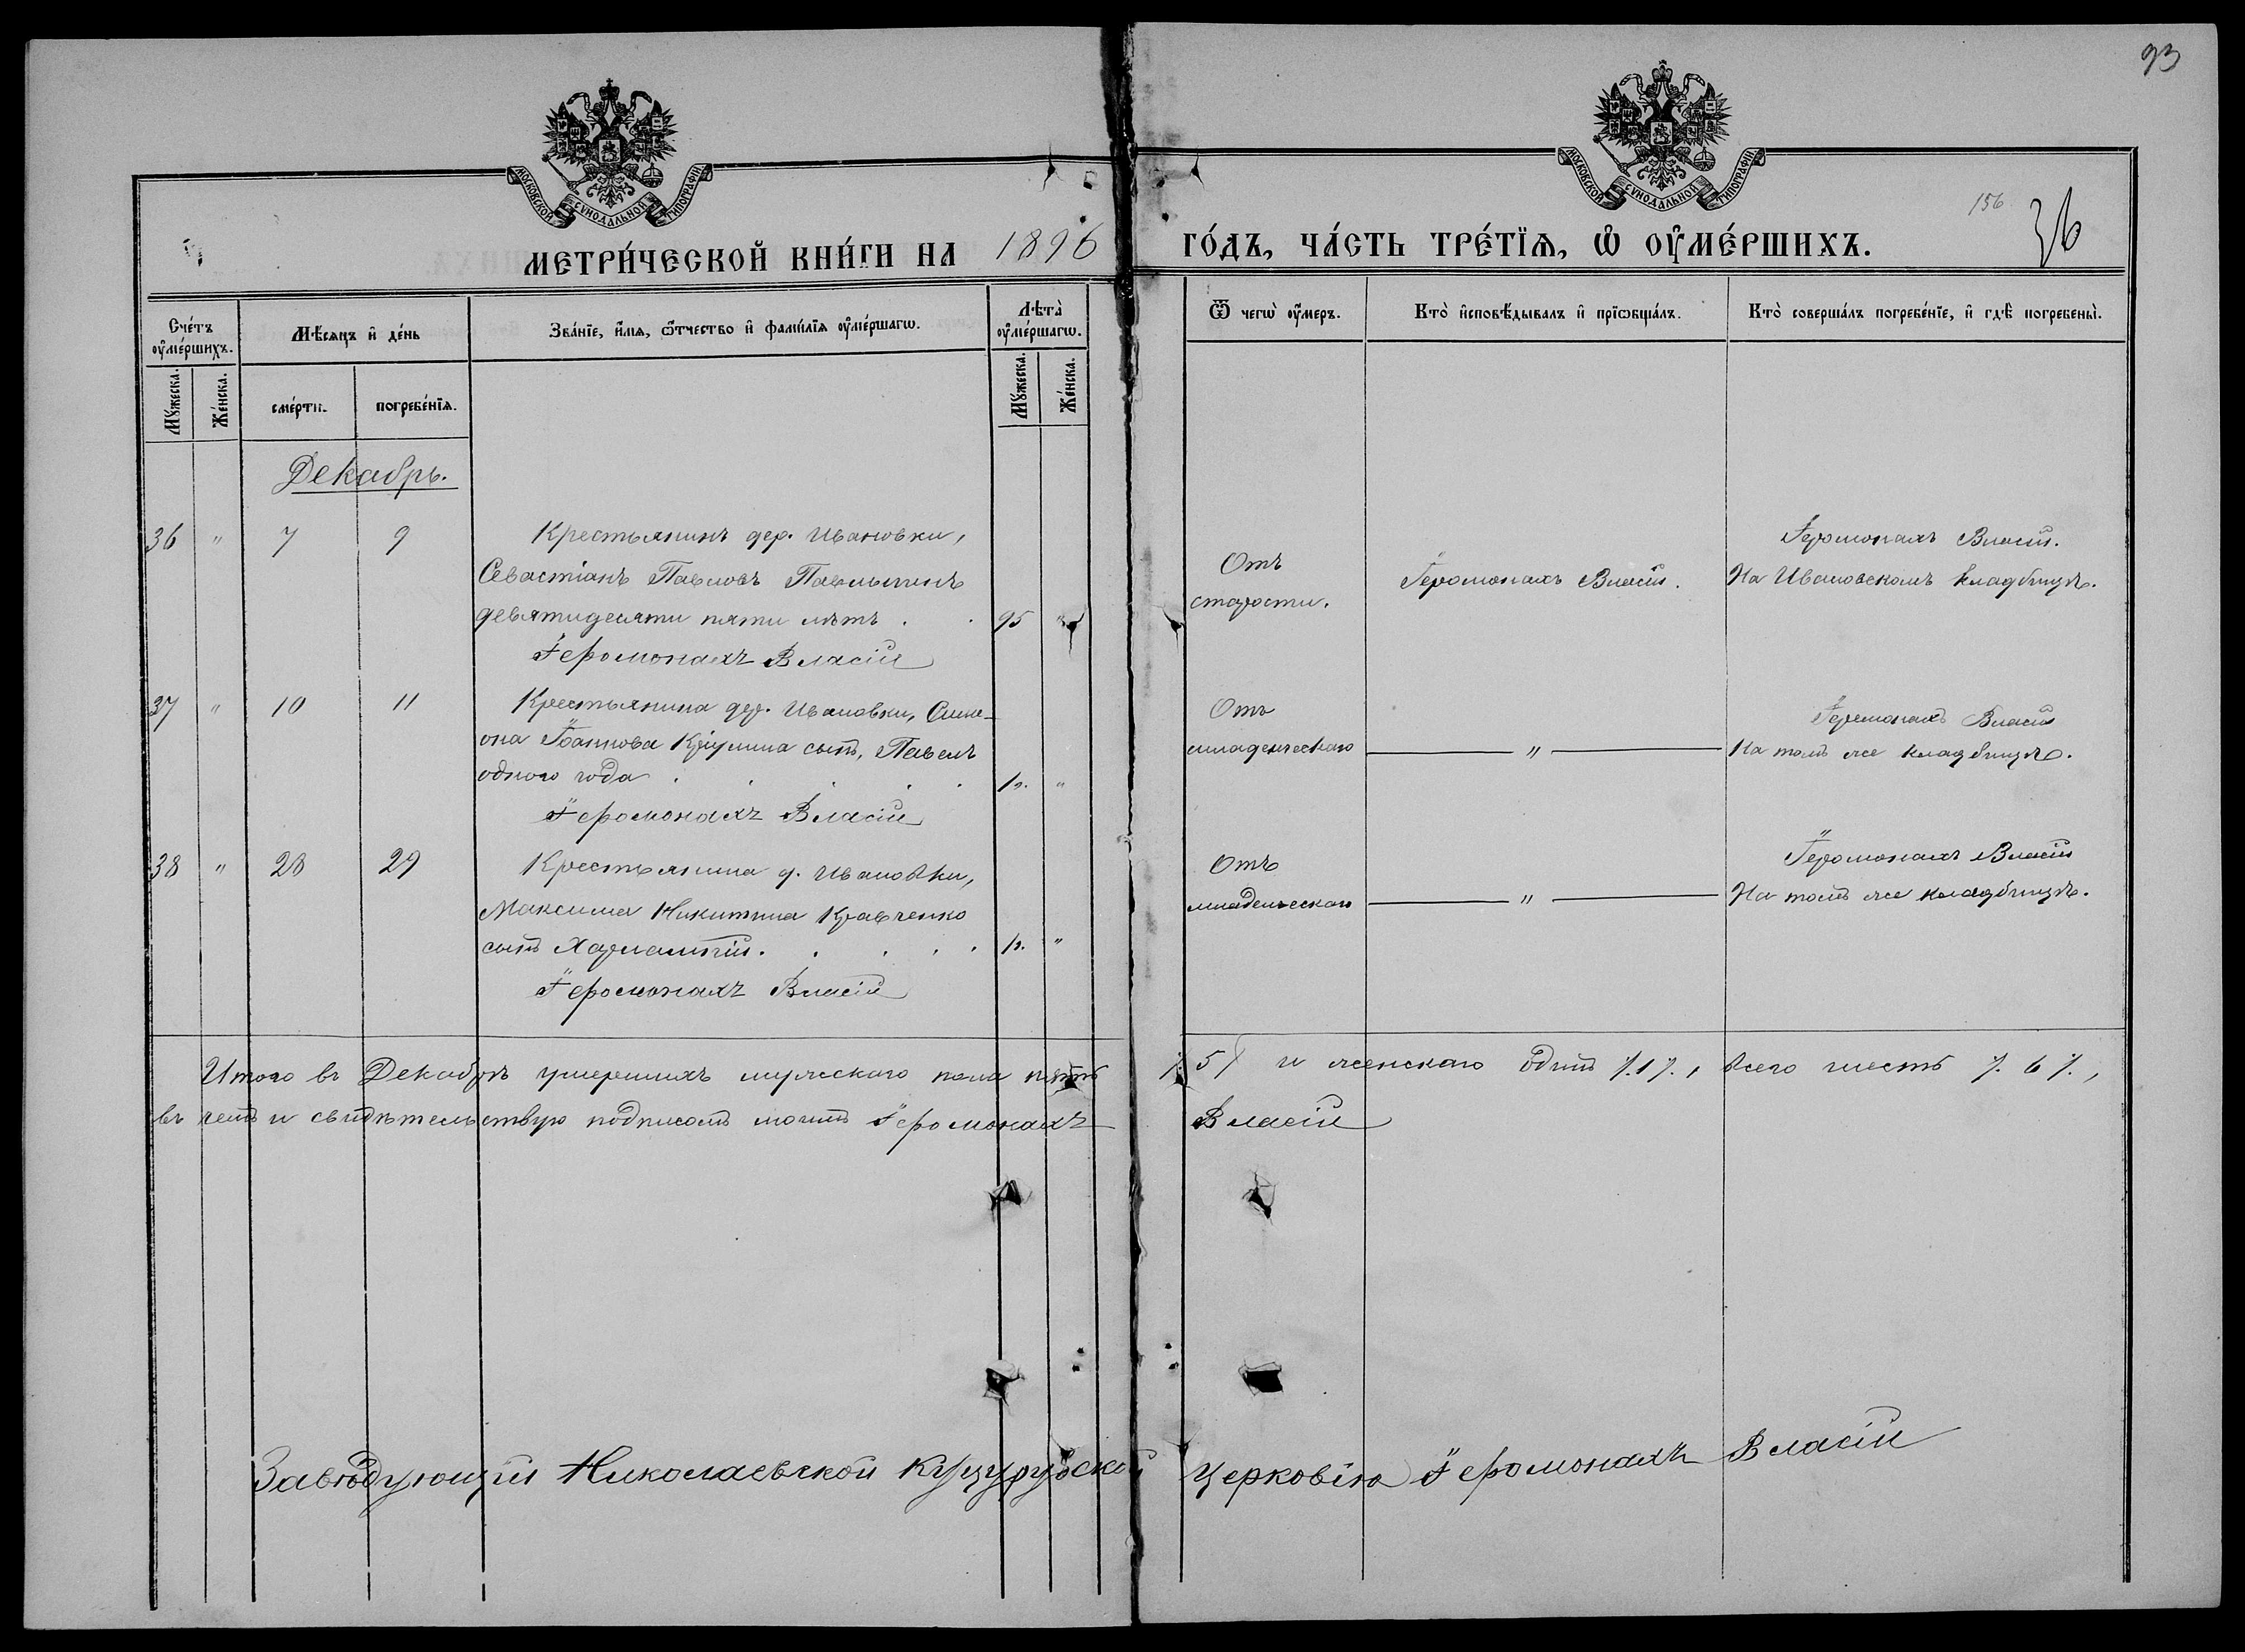 93
МОСКОВСКОЙ СУНОДАЛЬНОЙ ТИПОГРАФІИ.
МОСКОВСКОЙ СУНОДАЛЬНОЙ ТИПОГРАФІИ.
156
36
МЕТРИ́ЧЕСКОЙ КНИ́ГИ НА 1896 ГО́ДЪ, ЧА́СТЬ ТРЕ́ТІѦ, Ѡ҆ ОУ҆МЕ́РШИХЪ.
Сче́тъ оу҆ме́ршихъ.
Мѣ́сѧцъ и҆ де́нь
Зва́нїе, и҆́мѧ, ѻ҆́тчество и҆ фамі́лїѧ оу҆ме́ршагѡ.
Лѣта̀ оу҆ме́ршагѡ.
Ѿ чегѡ̀ оу҆́меръ.
Кто̀ и҆сповѣ́дывалъ и҆ прїѡбща́лъ.
Кто̀ соверша́лъ погребе́нїе, и҆ гдѣ̀ погребены̀.
Мꙋ́жеска.
Же́нска.
сме́рти.
погребе́нїѧ.
Мꙋ́жеска.
Же́нска.
Декабрь.
36 " 7 9 Крестьянинъ дер. Ивановки,
Севастіанъ Павловъ
девятидесяти пяти лѣтъ . . 95 "
Іеромонахъ Власій
Отъ
старости.
Іеромонахъ Власій.
Іеромонахъ Власій.
На Ивановскомъ кладбищѣ.
37 " 10 11 Крестьянина дер. Ивановки, Симе-
она Іоаннова сынъ, Павелъ
одного года . . . . . 1 г. "
Іеромонахъ Власій
Отъ
младенческаго
"
Іеромонахъ Власій
На томъ же кладбищѣ.
38 " 28 29 Крестьянина д. Ивановки,
Максима Никитина Кравченко
сынъ Харлампій. . . . . 1 г. "
Іеромонахъ Власій
Отъ
младенческаго
"
Іеромонахъ Власій
На томъ же кладбищѣ.
Итого въ Декабрѣ умершихъ мужескаго пола пять /. 5 / и женскаго одинъ /. 1 /., всего шесть /. 6 /.,
въ чемъ и свидѣтельствую подписомъ моимъ Іеромонахъ Власій
Завѣдующій Николаевской Куцурубской церковію Іеромонахъ Власій